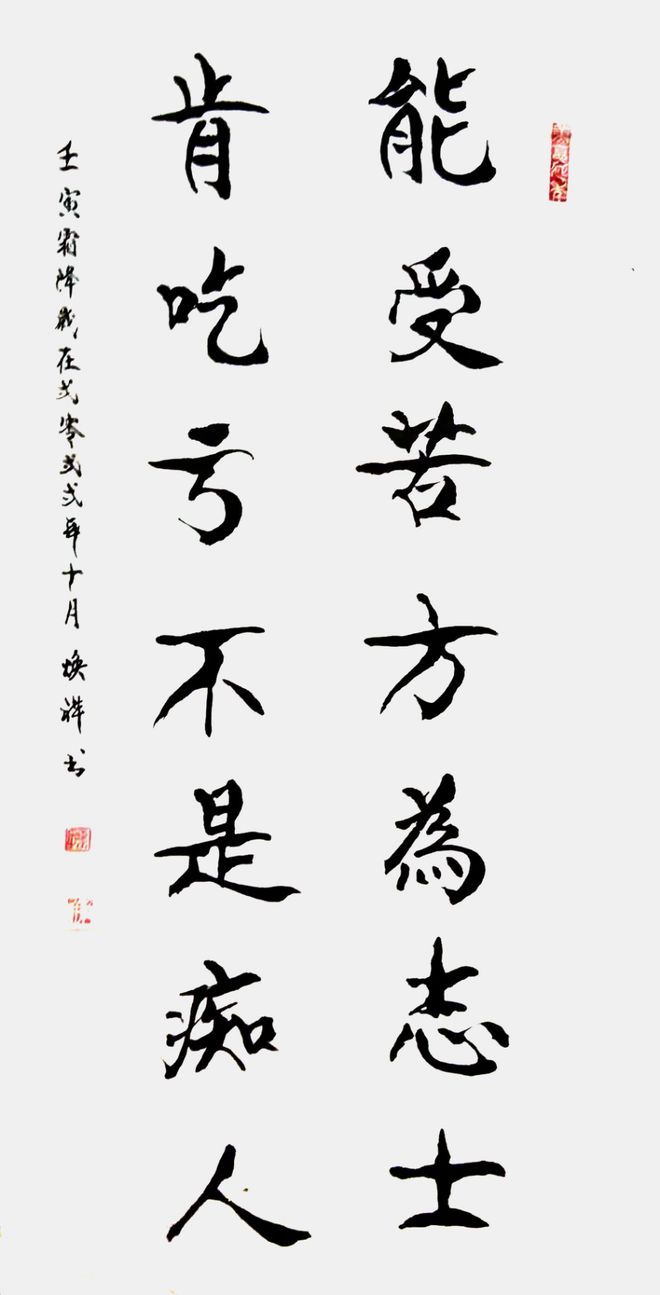 能受苦方為志士
肯吃亏不是痴人
壬寅霜降岁在弍零弍弍年十月焕祥书